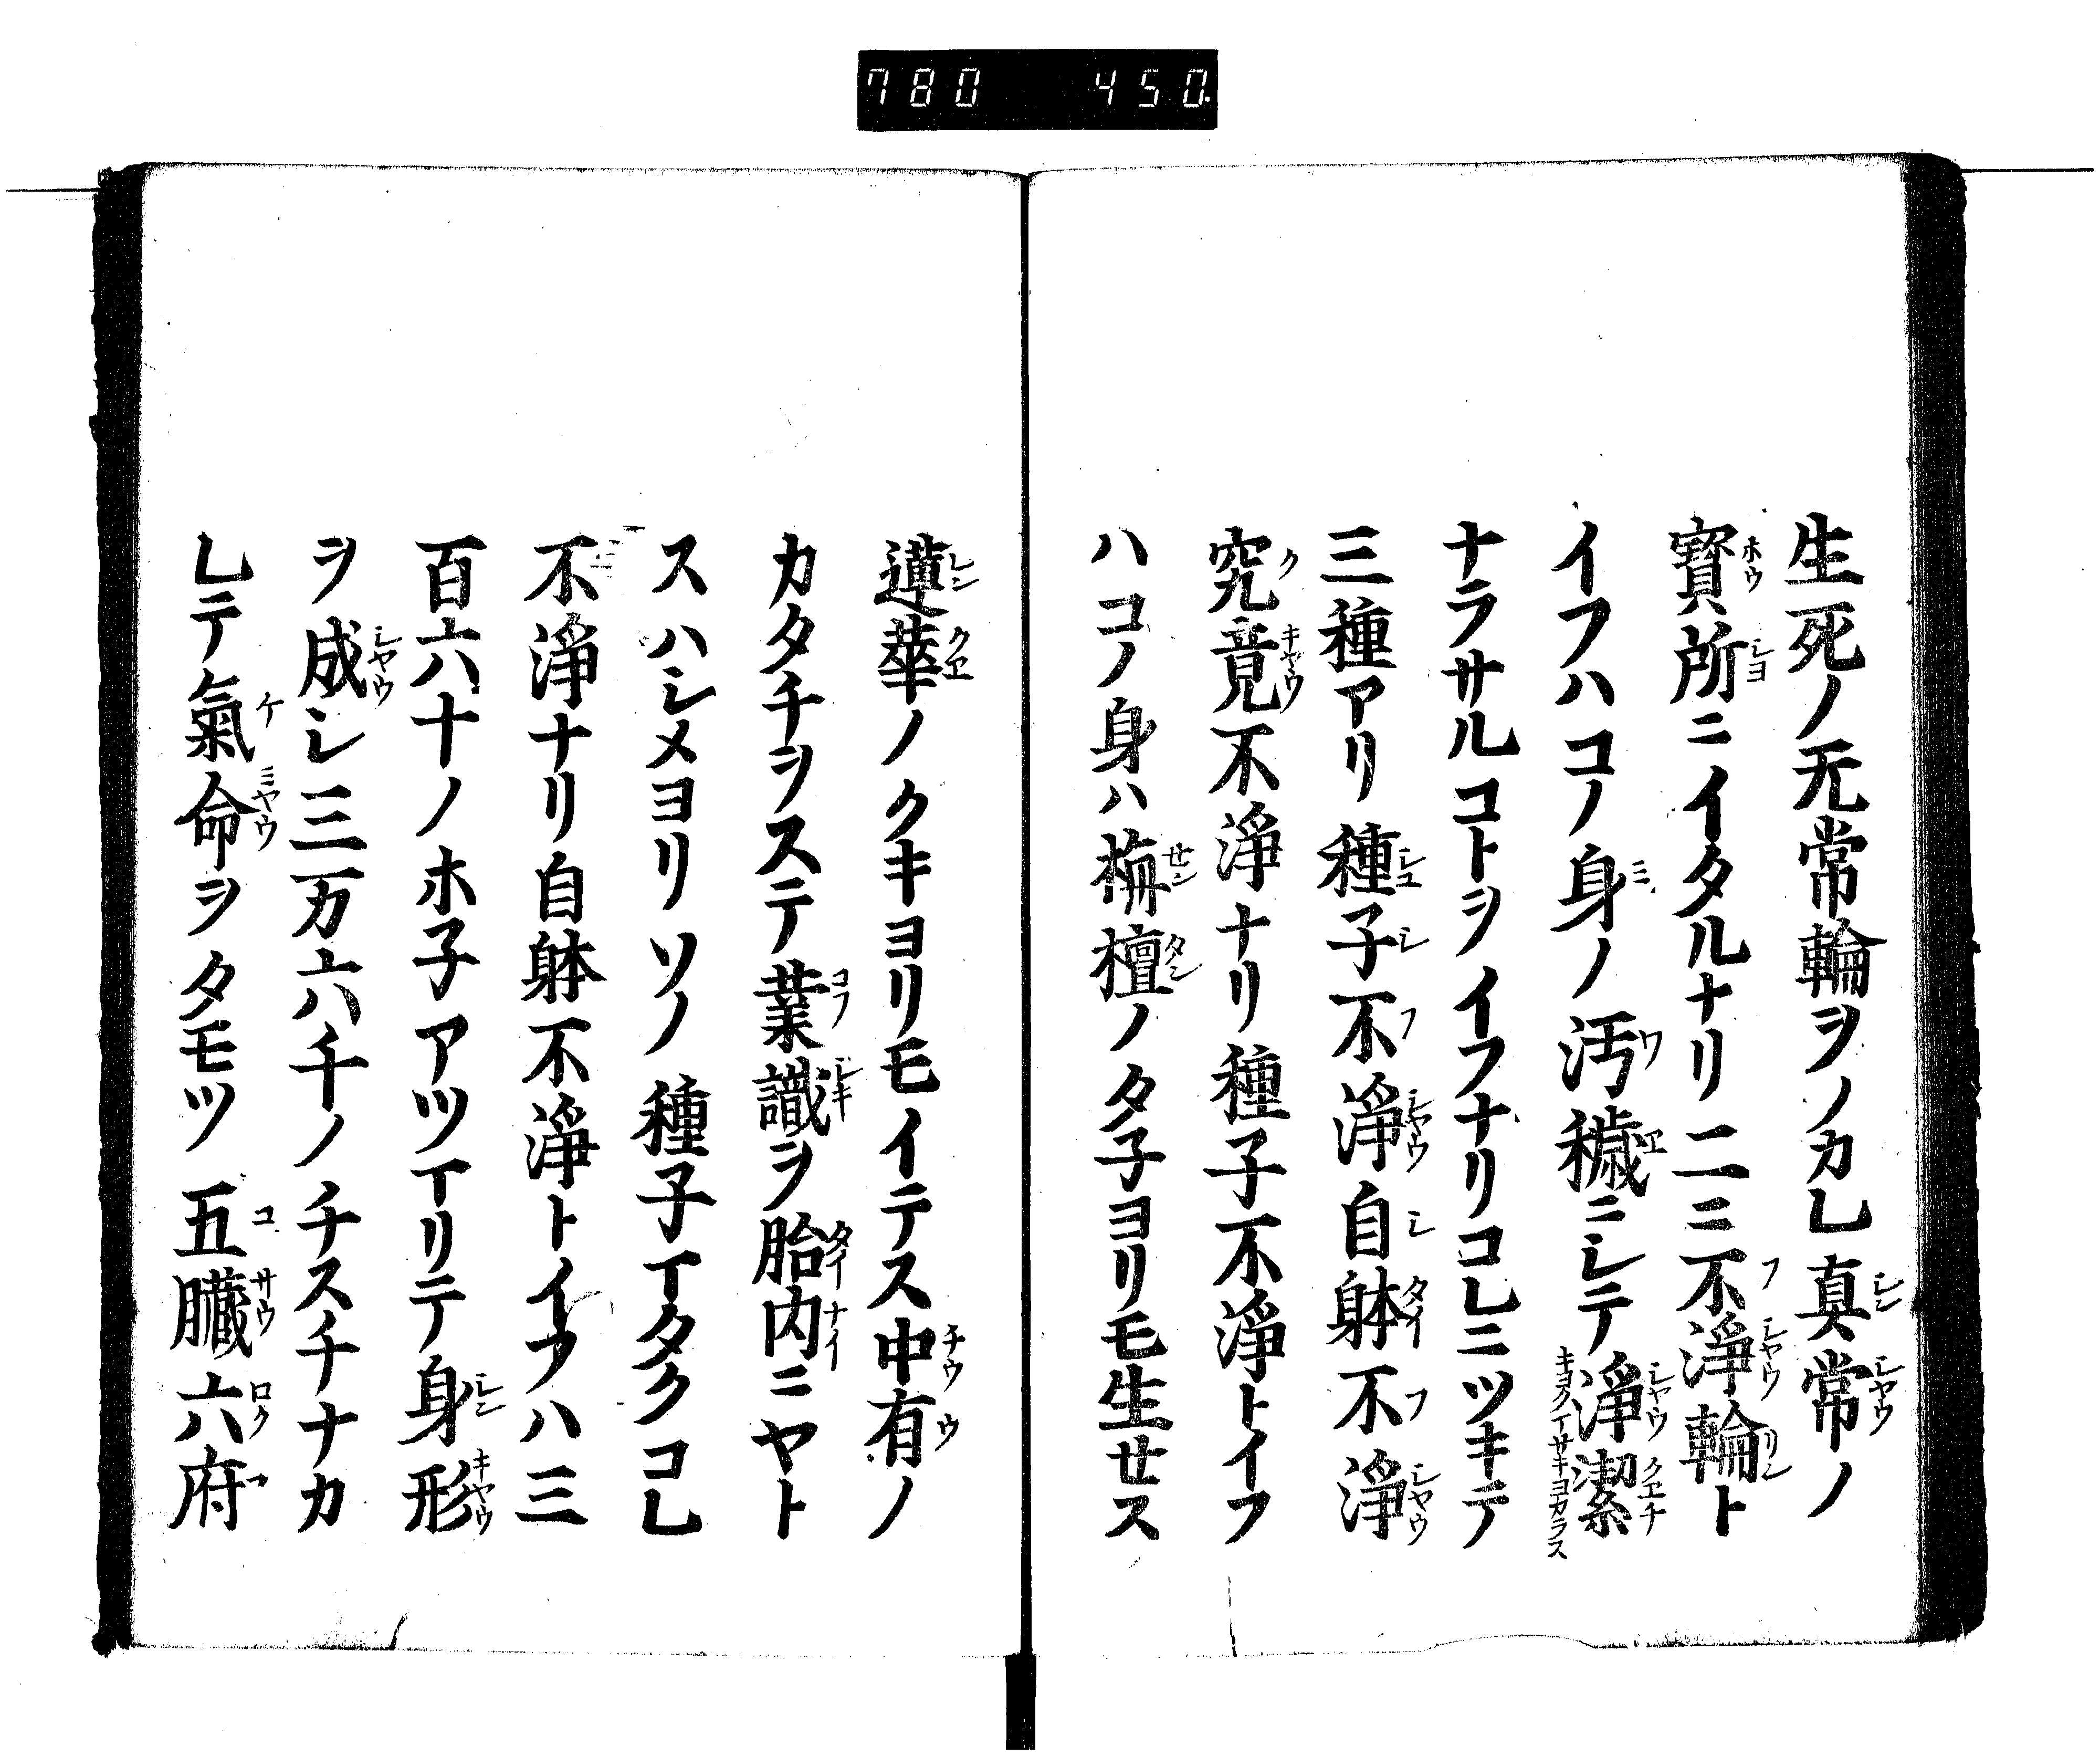 780 450
生死ノ无常輪ヲノカレ真常ノ
寳所ニイタルナリ二ニ不淨輪ト
イフハコノ身ノ汚穢ニシテ淨潔
ナラサルコトヲイフナリコレニツキテ
三種アリ種子不淨自躰不淨
究竟不淨ナリ種子不淨トイフ
ハコノ身ハ栴檀ノタ子ヨリモ生セス
蓮華ノクキヨリモイテス中有ノ
カタチヲステ業識ヲ胎内ニヤト
スハシメヨリソノ種子イタクコレ
不淨ナリ自躰不淨トイフハ三
百六十ノホ子アツマリテ身形
ヲ成シ三万六千ノチスチナカ
レテ氣命ヲタモツ五臓六府